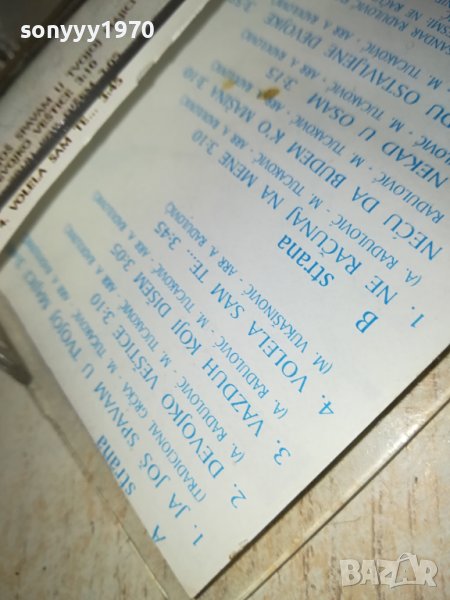 sonyyy1970
A
strana
1. JA JOŠ SPAVAM U TVOJOJ MAJICI 3:
(TRADICIONAL GRČKA - M. TUCAKOVIĆ - ARR A. RADULOVIĆ)
2. DEVOJKO VEŠTICE 3:10
(A. RADULOVIĆ - M. TUCAKOVIĆ - ARR A. RADULOVIĆ)
3. VAZDUH KOJI DIŠEM 3:05
(A. RADULOVIĆ - M. TUCAKOVIĆ - ARR A. RADULOVIĆ)
4. VOLELA SAM TE... 3:45
(M. VUKAŠINOVIĆ - ARR A. RADULOVIĆ)
B
strana
1. NE RAČUNAJ NA MENE 3:10
(A. RADULOVIĆ - M. TUCAKOVIĆ - ARR A. RADULOVIĆ)
NEĆU DA BUDEM K'O MAŠINA 3:10
RADULOVIĆ - M. TUCAKOVIĆ - ARR A. RADULOVIĆ)
NEKAD U OSAM 3:15
- M. TUCAKOVIĆ - ARR A. RADULOVIĆ)
OSTAVLJENE DEVOJKE
- M. TUCAKOVIĆ
SPAVAM U TVOJOJ
VEŠTICE 3:10
4. VOLELA SAM TE... 3:45
BAZAR.BG